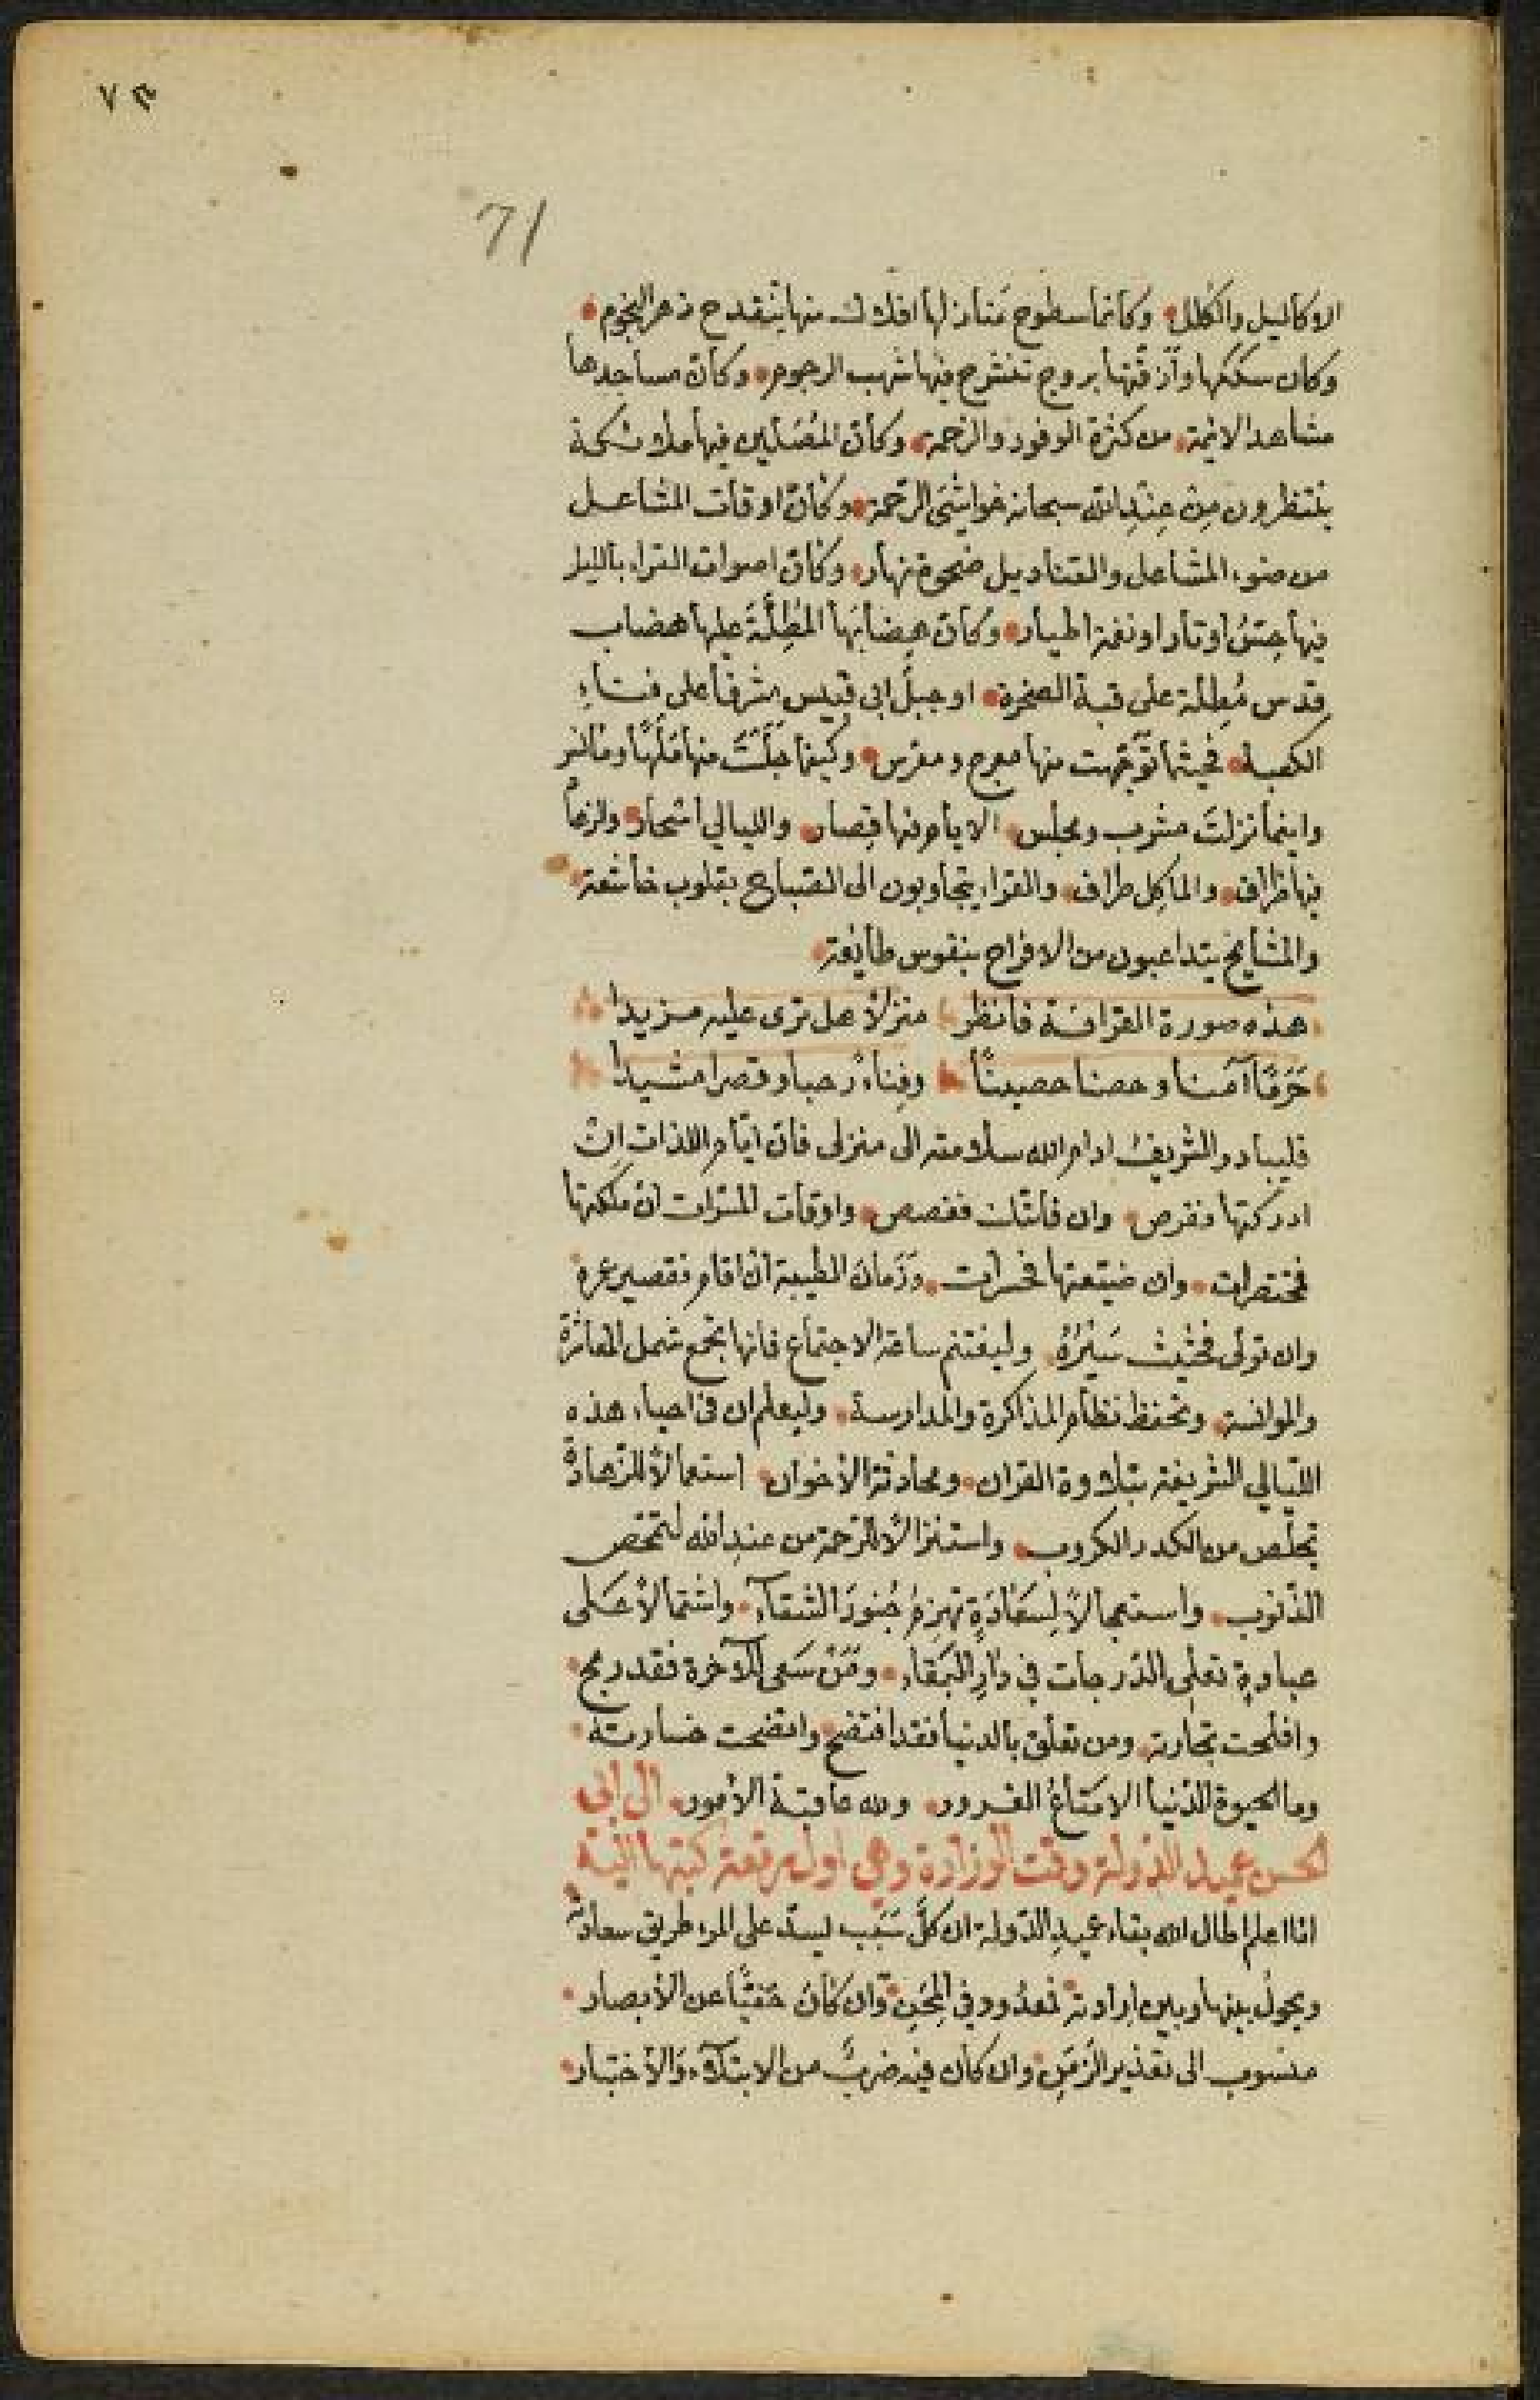 ٧٣
71
الاكاليل والكلل وكأنما سطوح منازلها افلاك منها ينقدح زهر النجوم
وكان سككها وأزقتها بروج تنشرح فيها شهب الرجوم وكأن مساجدها
مشاهد الائمة من كثرة الوفود والزحمة وكأن المصلين فيها ملائكة
ينتظرون من عند الله سبحانه غواشي الرحمة وكأن اوقات المشاعل
من ضوء المشاعل والقناديل ضحوة نهار وكأن اصوات القراء بالليل
فيها جس أوتار او نغمة اطيار وكأن هضابها المطلة عليها هضاب
قدس مطلة على قبة الصخرة او جبل ابي قبيس مشرفا على فناء
الكعبة فحيثما توجهت منها معرج ومعرس وكيفما حللت منها ملهًا ومانس
واينما نزلت مشرب ومجلس الايام فيها قصار والليالي اسحار ولزها
فيها ظراف والماكل طراف والقراء يتجاوبون الى الصباح بقلوب خاشعة
والمشايخ يتداعبون من الافراح بنفوس طائعة
هذه صورة القرافة فانظر منزلا هل ترى عليه مزيدا
حرمًا آمنا وحصنا حصينًا وفناء رحبا وقصرا مشيدا
فليبادر الشريف ادام الله سلامته الى منزلى فان ايام اللذات ان
ادركتها ففرص وان فاتتك فغصص واوقات المسرات ان ملكتها
فمختصرات وان ضيعتها فحسرات وزمان الطيبة ان اقام فقصير عمره
وان تولى فحثيث سيره وليغتنم ساعة الاجتماع فانها تجمع شمل المعاشرة
والموانسة وتحفظ نظام المذاكرة والمدارسة وليعلم ان في احياء هذه
الليالي الشريفة بتلاوة القران ومحادثة الاخوان استعمالا للزهادة
تخلص من الكدر الكروب واستنزالًا للرحمة من عند الله لتمحص
الذنوب واستعجالًا لسعادة تهزم جنود الشقاء واشتمالًا على
عبادة تعلى الدرجات في دار البقاء ومن سعى للآخرة فقد ربح
وافلحت تجارته ومن تعلق بالدنيا فقد افتضح واتضحت خسارته
وما الحيوة الدنيا الا متاع الغرور ولله عاقبة الأمور الى ابي
الحسن عميد الدولة وقت الوزارة وهي اول رقعة كتبتها اليه
انا اعلم اطال الله بقاء عميد الدولة ان كل سبب ليسد على المرء طريق سعادته
ويحول بينها وبين ارادته لمعدود في المحن وان كان خفيًا عن الأبصار
منسوب الى تعذير الزمن وان كان فيه ضرب من الابتلاء والاختبار